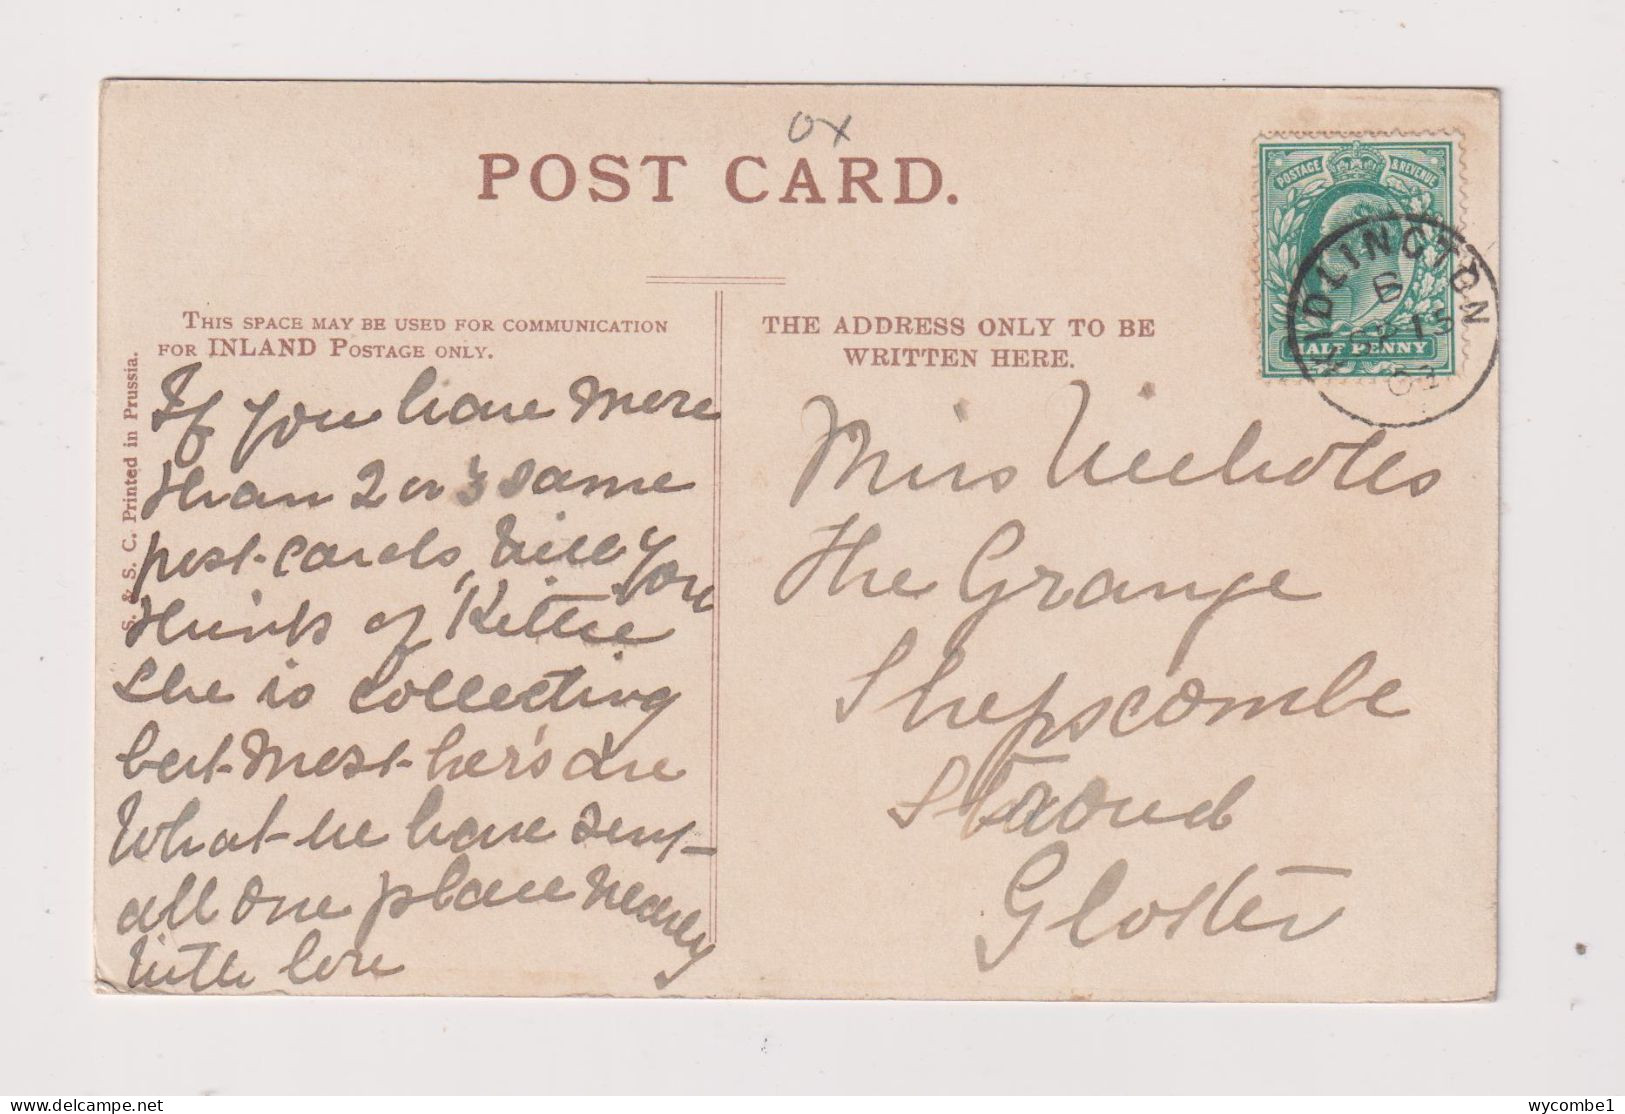 ox
POST CARD.
POSTAGE & REVENUE
HALF PENNY
KIDLINGTON
6
SP 15
THIS SPACE MAY BE USED FOR COMMUNICATION
FOR INLAND POSTAGE ONLY.
THE ADDRESS ONLY TO BE
WRITTEN HERE.
S. & S. C. Printed in Prussia.
If you have more
than 2 or 3 same
post-cards, will you
think of Kittie
She is collecting
but most her's are
What he have sent
all one place nearly
with love
Miss Nicholls
The Grange
Shepscombe
Stroud
Gloster
wycombe1